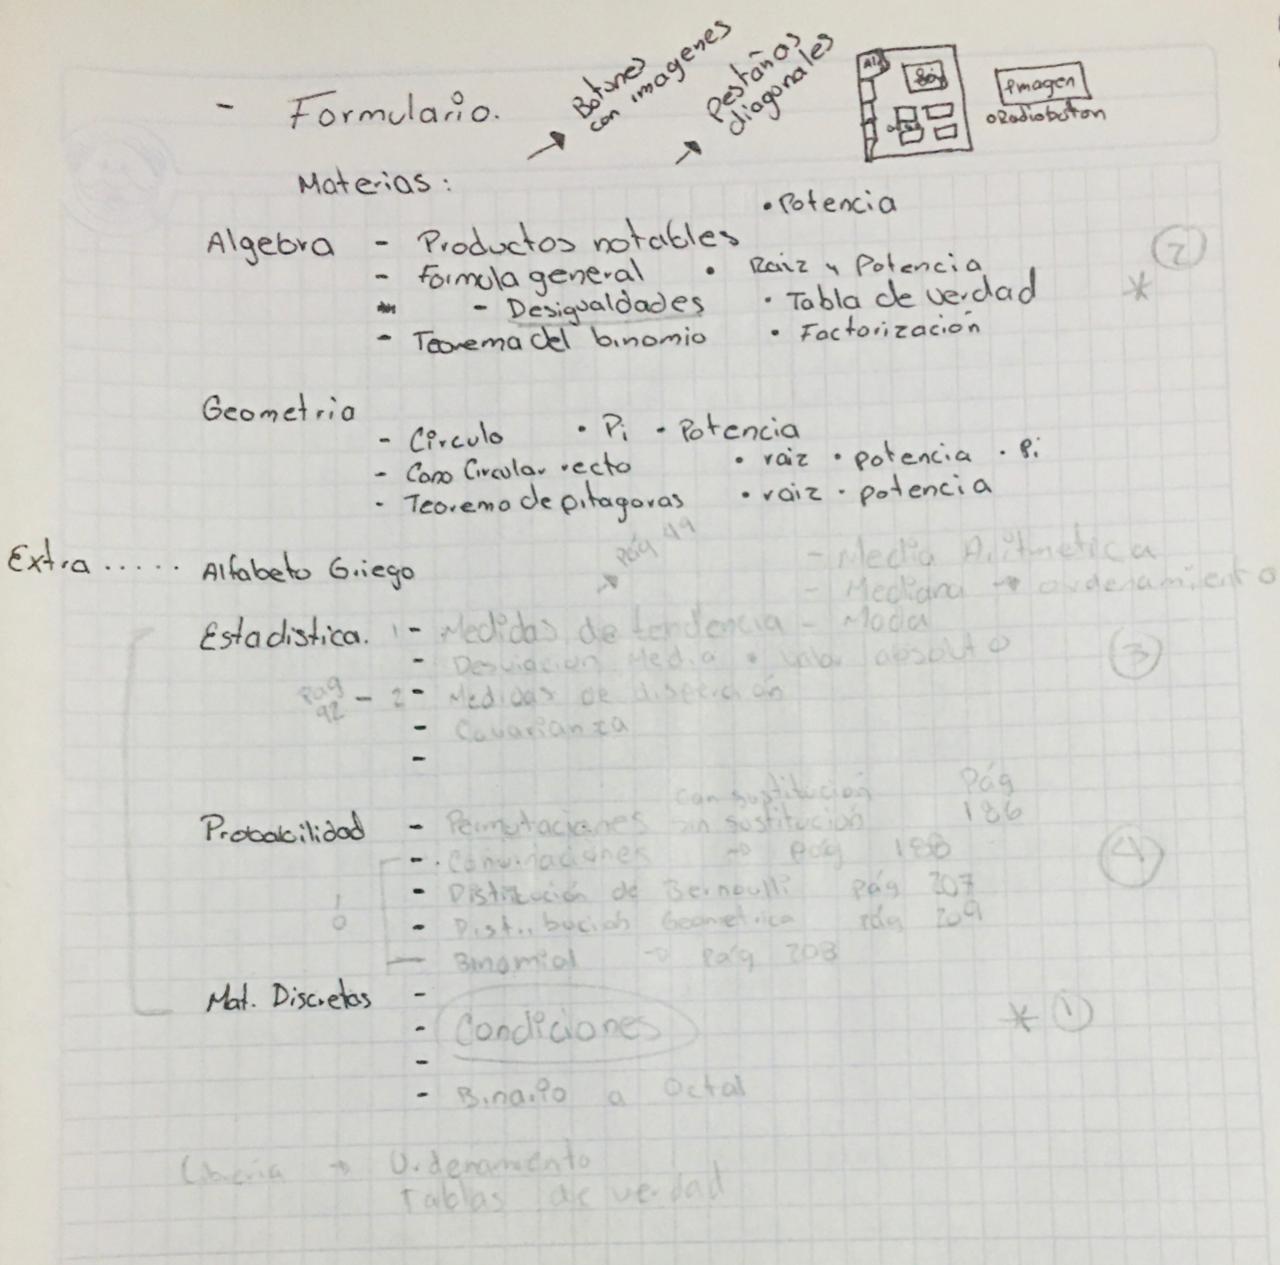 - Formulario.
Botones
con imagenes
Pestañas
diagonales
Imagen
o Radioboton
Materias:
• Potencia
Algebra - Productos notables
- Formula general • Raiz y Potencia
- Desigualdades • Tabla de verdad
- Teorema del binomio • Factorización
Geometria
- Circulo • Pi • Potencia
- Cono Circular recto • raiz • potencia • Pi
- Teorema de pitagoras • raiz • potencia
pág 49
- Media Aritmetica
Extra ..... Alfabeto Griego
- Mediana → ordenamiento
Estadistica. 1 - Medidas de tendencia - Moda
- Desviacion Media • valor absoluto
3
pag 92 - 2 - Medidas de disperción
- Covarianza
-
con sustitución Pág
Probabilidad - Permutaciones sin sustitución 186
- Convinaciones → pág 188
4
- Distribución de Bernoulli pág 207
1
0
- Distribución Geometrica pág 209
- Binomial → pág 208
Mat. Discretas -
- Condiciones * 1
-
- Binario a Octal
Libreria → Ordenamiento
Tablas de verdad
* 2